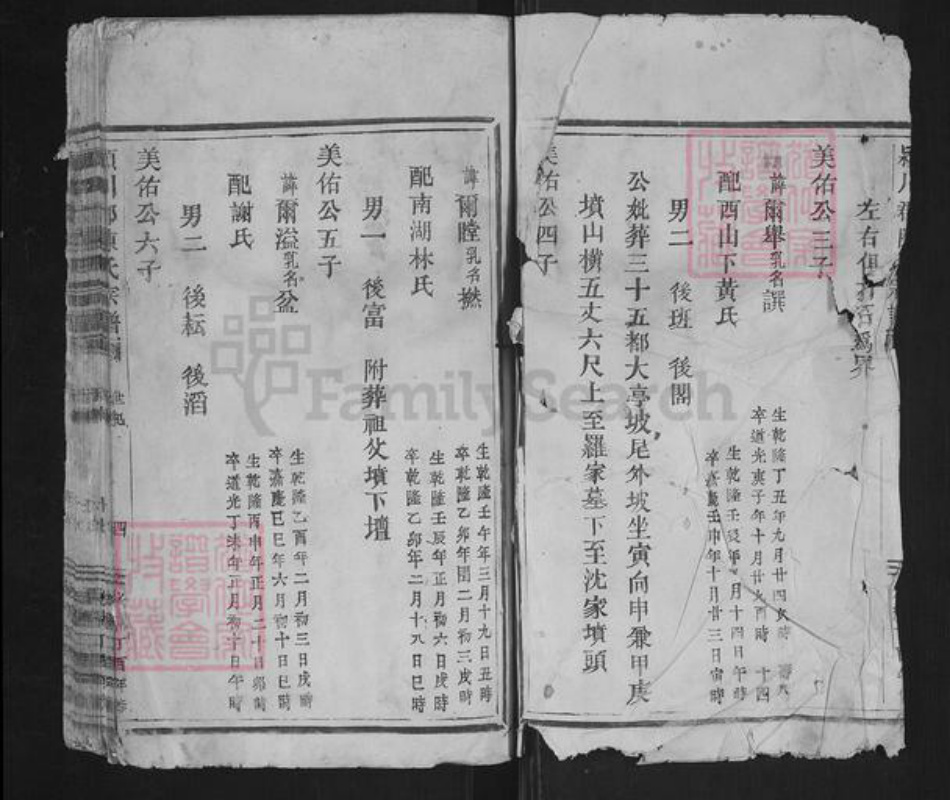 左右俱
為界
美佑公三子
諱爾舉乳名譔
生乾隆丁丑年九月廿四亥時
卒道光庚子年十月廿八酉時
配西山下黃氏
生乾隆壬辰年 月十四日午時
卒嘉慶壬申年十月廿三日寅時
男二 後班 後閣
公妣葬三十五都大亭坡尾外坡坐寅向申兼甲庚
墳山橫五丈六尺上至羅家墓下至沈家墳頭
美佑公四子
諱爾瞠乳名撚
生乾隆壬午年三月十九日丑時
卒乾隆乙卯年閏二月初三戌時
配南湖林氏
生乾隆壬辰年正月初六日戌時
卒乾隆乙卯年二月十八日巳時
男一 後富 附葬祖父墳下壇
美佑公五子
諱爾溢乳名盆
生乾隆乙酉年二月初三日戌時
卒嘉慶己巳年六月初十日巳時
配謝氏
生乾隆丙申年正月二十日卯時
卒道光丁未年正月初十日午時
男二 後耘 後滔
美佑公六子
世紀
四
FamilySearch